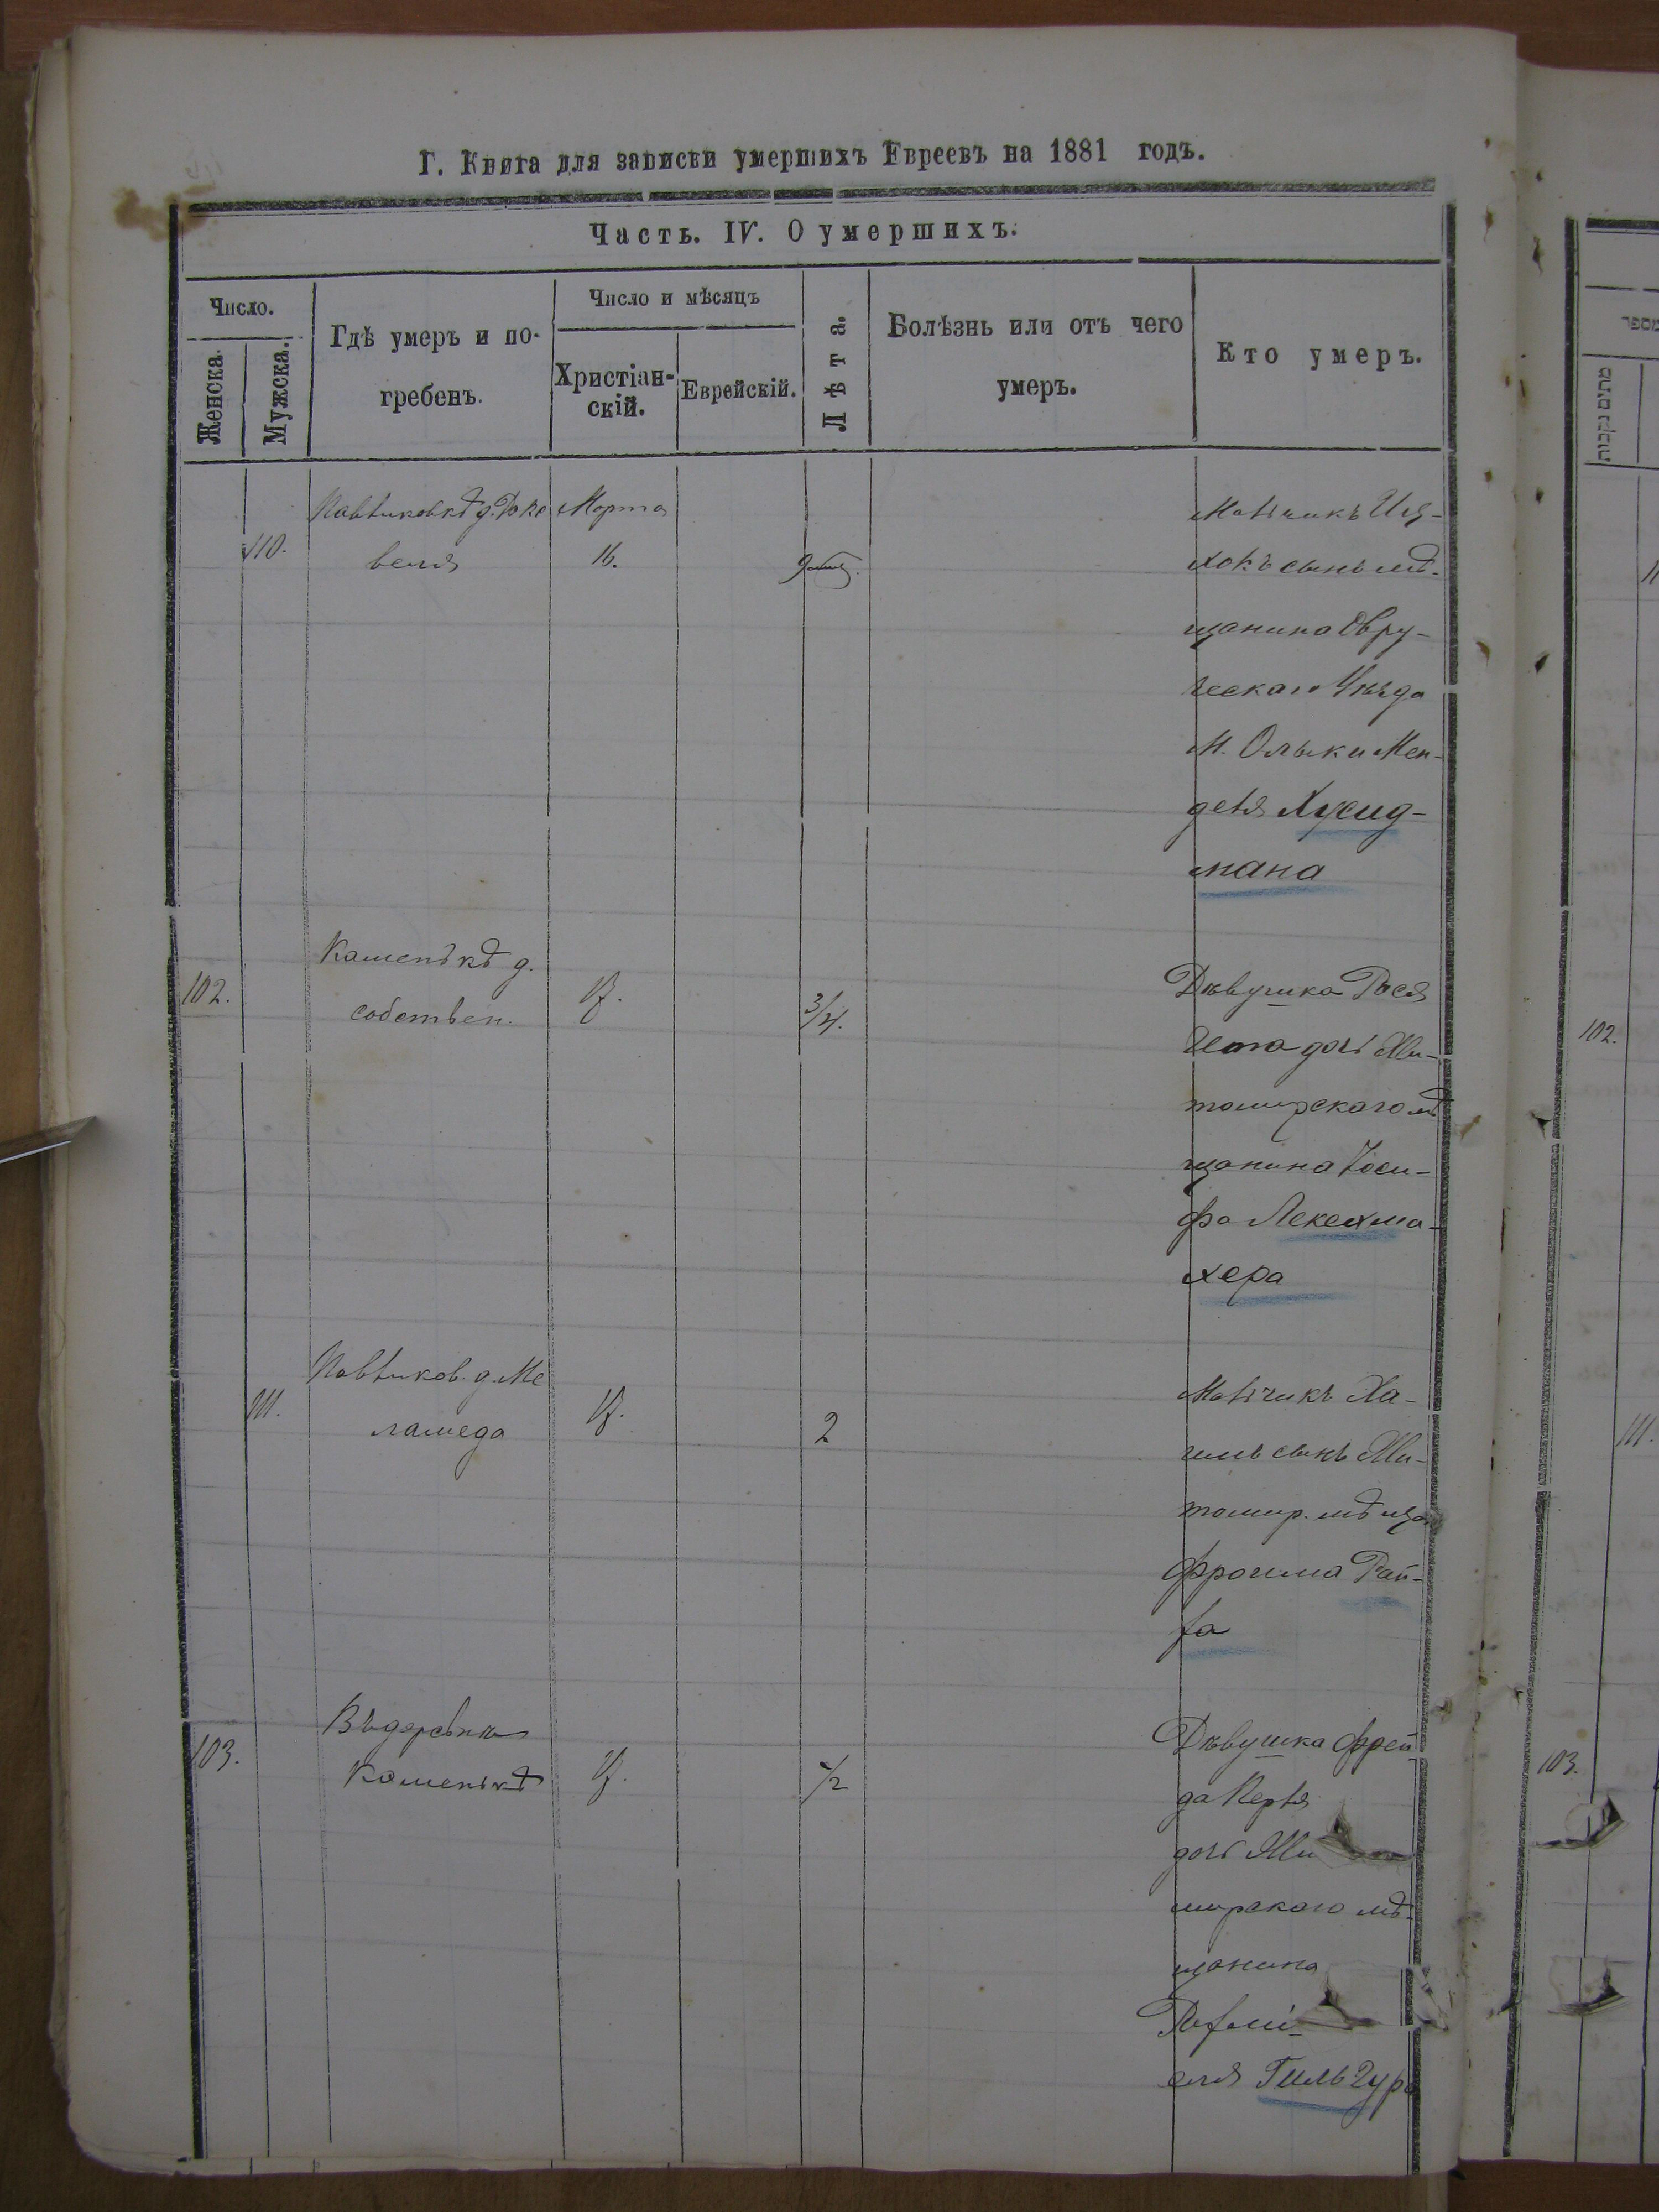 Г. Книга для записки умершихъ Евреевъ на 1881 годъ.
Часть. IV. О умершихъ.
Число.
Женска.
Мужска.
Гдѣ умеръ и по-
гребенъ.
Число и мѣсяцъ
Христіан-
скій.
Еврейскій.
Лѣта.
Болѣзнь или отъ чего
умеръ.
Кто умеръ.
110.
Павликовкѣ д.
Марта
16.
9
Мальчикъ Иц-
хокъ сынъ мѣ-
щанина Овру-
ческаго Уѣзда
М. Олыки Мен-
деля Хусид-
мана
102.
Каменькѣ д.
собствен.
17.
3/4.
Дѣвушка Рося
Чета дочь Жи-
томирскаго мѣ
щанина Іоси-
фа Лекехма-
хера
111.
Павликов. д. Ме
ламеда
17.
2
Мальчикъ Ха-
имъ сынъ Жи-
томир. мѣща
Фроима Рай-
за
103.
Въ деревни
Каменькѣ
17.
1/2
Дѣвушка Фрей
да Перля
дочь Жи
мирскаго мѣ-
щанина
еля Гильчура
מספר
מתים נקבות
102.
111.
103.